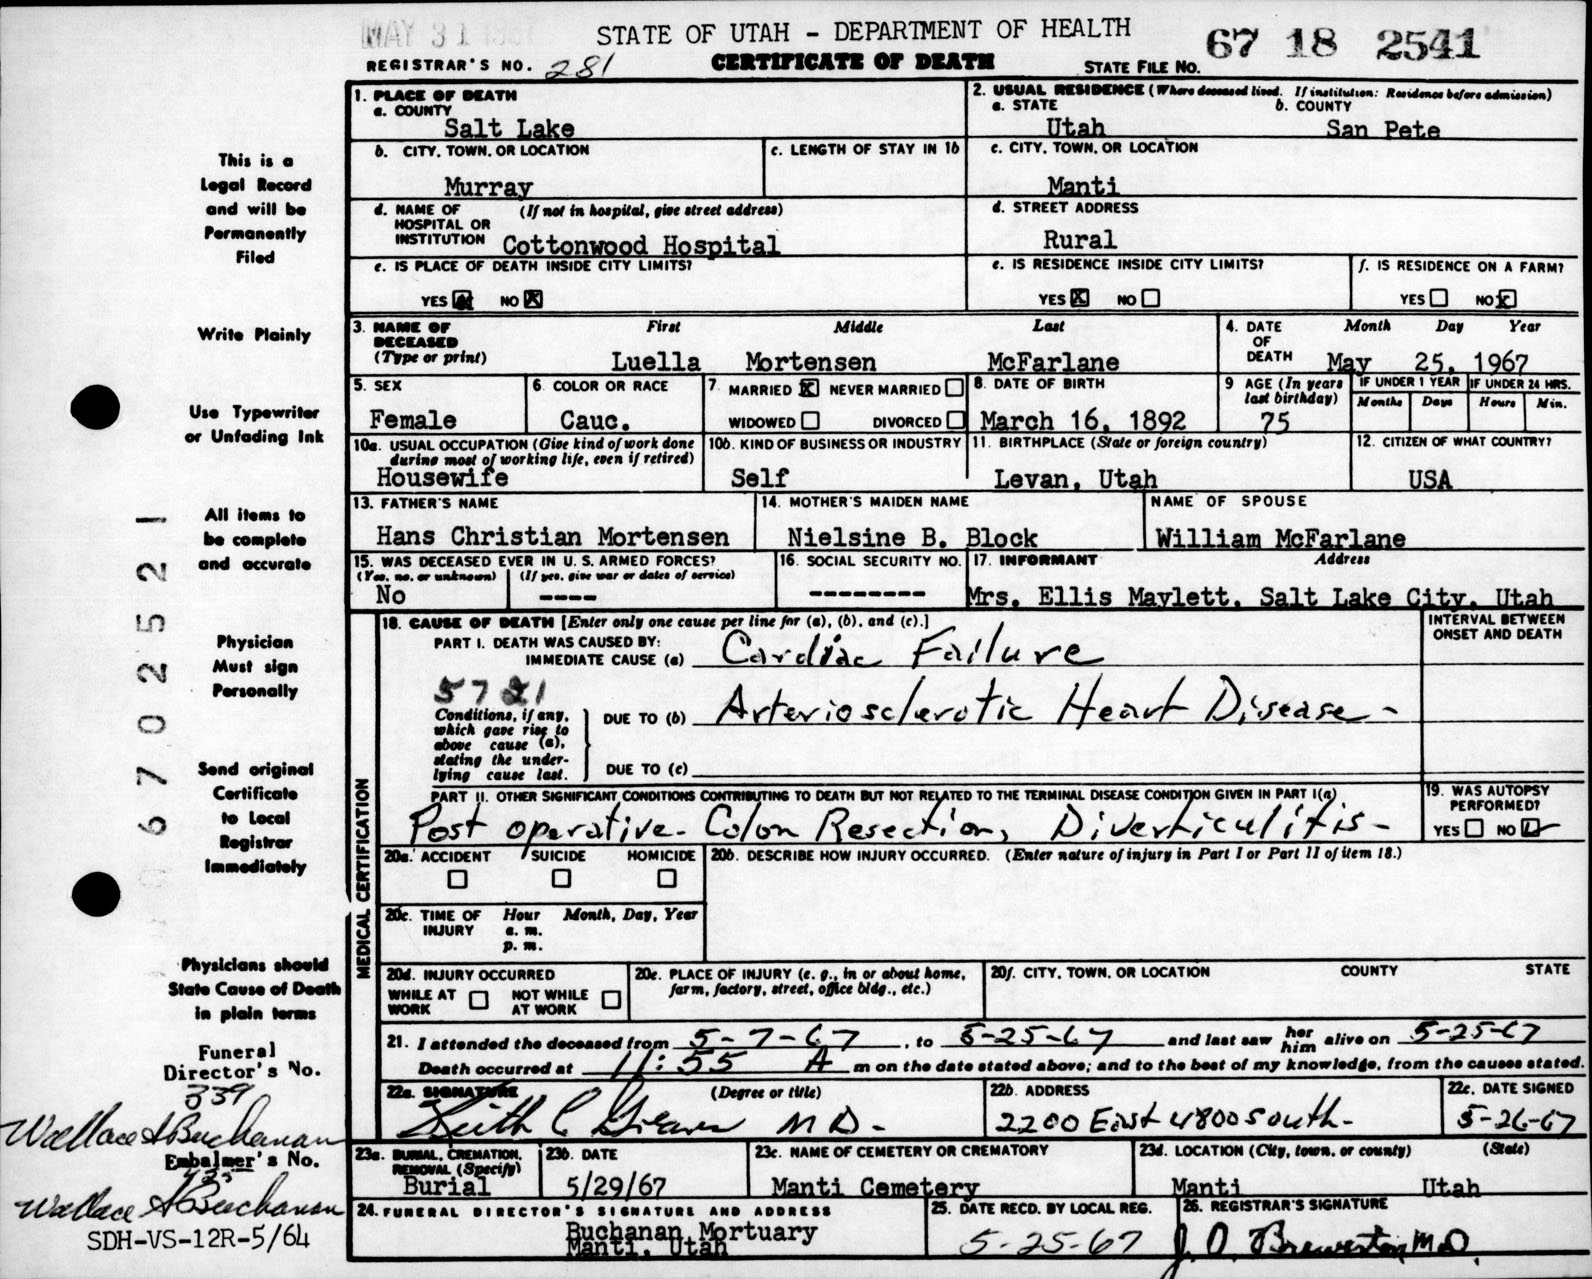 MAY 31 1967
STATE OF UTAH – DEPARTMENT OF HEALTH
67 18 2541
REGISTRAR'S NO. 281
CERTIFICATE OF DEATH
STATE FILE NO.
This is a
Legal Record
and will be
Permanently
Filed
Write Plainly
Use Typewriter
or Unfading Ink
All items to
be complete
and accurate
Physician
Must sign
Personally
Send original
Certificate
to Local
Registrar
Immediately
Physicians should
State Cause of Death
in plain terms
Funeral
Director's No.
339
Wallace A Buchanan
Embalmer's No.
Wallace A Buchanan
SDH-VS-12R-5/64
6702521
1. PLACE OF DEATH
a. COUNTY
Salt Lake
2. USUAL RESIDENCE (Where deceased lived. If institution: Residence before admission)
a. STATE b. COUNTY
Utah San Pete
b. CITY, TOWN, OR LOCATION c. LENGTH OF STAY IN 1b
Murray
c. CITY, TOWN, OR LOCATION
Manti
d. NAME OF (If not in hospital, give street address)
HOSPITAL OR
INSTITUTION Cottonwood Hospital
d. STREET ADDRESS
Rural
e. IS PLACE OF DEATH INSIDE CITY LIMITS?
YES NO X
e. IS RESIDENCE INSIDE CITY LIMITS?
YES X NO
f. IS RESIDENCE ON A FARM?
YES NO X
3. NAME OF First Middle Last
DECEASED
(Type or print) Luella Mortensen McFarlane
4. DATE Month Day Year
OF
DEATH May 25, 1967
5. SEX
Female
6. COLOR OR RACE
Cauc.
7. MARRIED X NEVER MARRIED
WIDOWED DIVORCED
8. DATE OF BIRTH
March 16, 1892
9 AGE (In years
last birthday)
75
IF UNDER 1 YEAR IF UNDER 24 HRS.
Months Days Hours Min.
10a. USUAL OCCUPATION (Give kind of work done
during most of working life, even if retired)
Housewife
10b. KIND OF BUSINESS OR INDUSTRY
Self
11. BIRTHPLACE (State or foreign country)
Levan, Utah
12. CITIZEN OF WHAT COUNTRY?
USA
13. FATHER'S NAME
Hans Christian Mortensen
14. MOTHER'S MAIDEN NAME
Nielsine B. Block
NAME OF SPOUSE
William McFarlane
15. WAS DECEASED EVER IN U. S. ARMED FORCES?
(Yes, no, or unknown) (If yes, give war or dates of service)
No ----
16. SOCIAL SECURITY NO.
--------
17. INFORMANT Address
Mrs. Ellis Maylett, Salt Lake City, Utah
MEDICAL CERTIFICATION
18. CAUSE OF DEATH [Enter only one cause per line for (a), (b), and (c).]
INTERVAL BETWEEN
ONSET AND DEATH
PART I. DEATH WAS CAUSED BY:
IMMEDIATE CAUSE (a) Cardiac Failure
5721
Conditions, if any,
which gave rise to
above cause (a),
stating the under-
lying cause last.
DUE TO (b) Arteriosclerotic Heart Disease -
DUE TO (c)
PART II. OTHER SIGNIFICANT CONDITIONS CONTRIBUTING TO DEATH BUT NOT RELATED TO THE TERMINAL DISEASE CONDITION GIVEN IN PART I(a)
Post operative - Colon Resection, Diverticulitis -
19. WAS AUTOPSY
PERFORMED?
YES NO
20a. ACCIDENT SUICIDE HOMICIDE
20b. DESCRIBE HOW INJURY OCCURRED. (Enter nature of injury in Part I or Part II of item 18.)
20c. TIME OF Hour Month, Day, Year
INJURY a. m.
p. m.
20d. INJURY OCCURRED
WHILE AT NOT WHILE
WORK AT WORK
20e. PLACE OF INJURY (e. g., in or about home,
farm, factory, street, office bldg., etc.)
20f. CITY, TOWN, OR LOCATION COUNTY STATE
21. I attended the deceased from 5-7-67, to 5-25-67 and last saw her him alive on 5-25-67
Death occurred at 11:55 A m on the date stated above; and to the best of my knowledge, from the causes stated.
22a. SIGNATURE (Degree or title)
Keith C MD -
22b. ADDRESS
2200 East 4800 South -
22c. DATE SIGNED
5-26-67
23a. BURIAL, CREMATION,
REMOVAL (Specify)
Burial
23b. DATE
5/29/67
23c. NAME OF CEMETERY OR CREMATORY
Manti Cemetery
23d. LOCATION (City, town, or county) (State)
Manti Utah
24. FUNERAL DIRECTOR'S SIGNATURE AND ADDRESS
Buchanan Mortuary
Manti, Utah
25. DATE RECD. BY LOCAL REG.
5-25-67
26. REGISTRAR'S SIGNATURE
J. O. Brewerton, M.D.